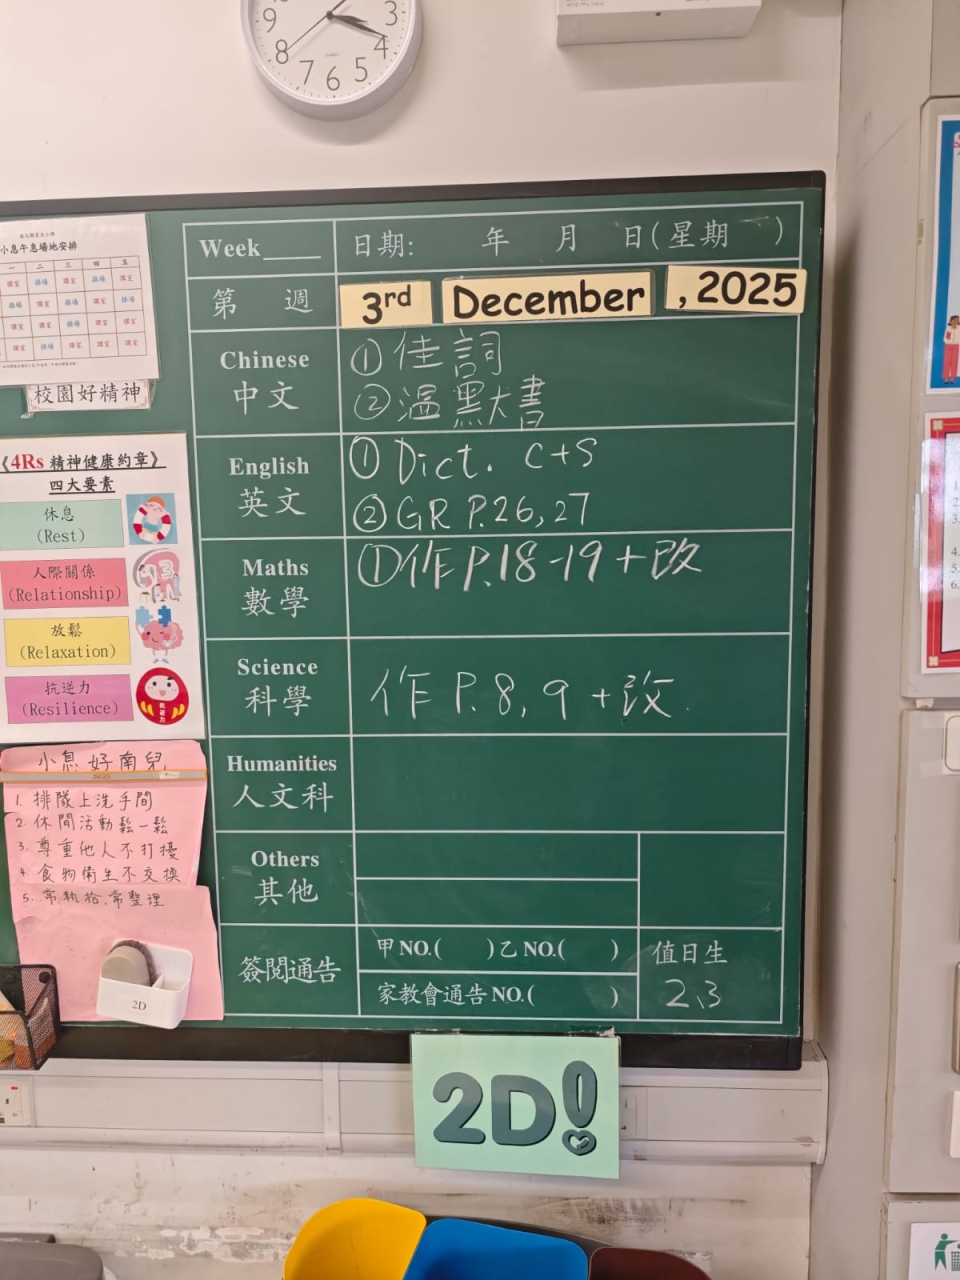 9
3
8
4
7
6
5
小息午息場地安排
一 二 三 四 五
校園好精神
《4Rs 精神健康約章》
四大要素
休息
(Rest)
人際關係
(Relationship)
放鬆
(Relaxation)
抗逆力
(Resilience)
抗逆力
小息好南兒
1. 排隊上洗手間
2. 休閒活動鬆一鬆
3. 尊重他人不打擾
4. 食物衛生不交換
5. 常執拾、常整理
2D
Week
日期: 年 月 日(星期 )
第 週
3rd December , 2025
Chinese
中文
① 佳詞
② 溫默書
English
英文
① Dict. C+S
② GR P.26, 27
Maths
數學
① 作 P.18-19 + 改
Science
科學
作 P.8, 9 + 改
Humanities
人文科
Others
其他
簽閱通告
甲 NO.( ) 乙 NO.( )
家教會通告 NO.( )
值日生
2、3
2D!